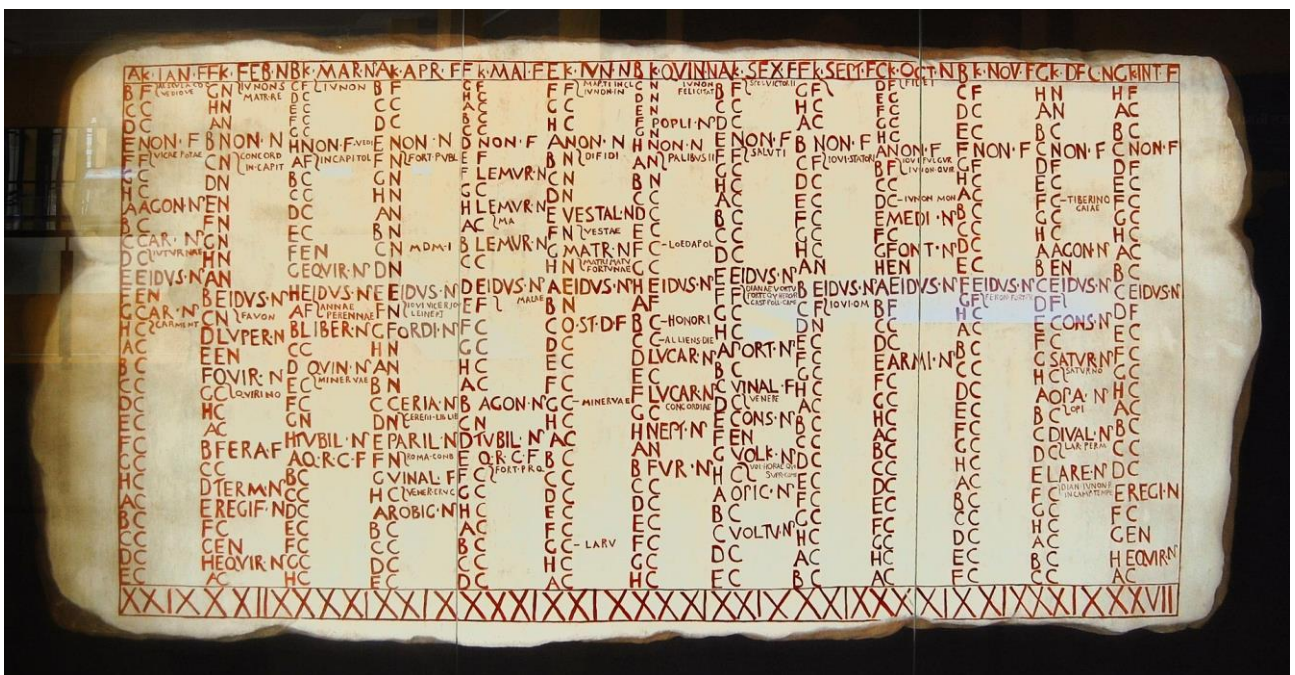 AK·IAN·F FK·FEB·N BK·MAR·N AK·APR·F FK·MAI·F EK·IVN·N BK·QVIN·N AK·SEX·F FK·SEPT·F CK·OCT·N BK·NOV·F GK·DEC·N GK·INT·F
B F
C
D C
E NON·F
F F VICAE POTAE
G C
H C
A AGON·N
B C
C CAR·N IVTVRNAE
D C
E EIDVS·N
F EN
G CAR·N CARMENT
H C
A C
B C
C C
D C
E C
F C
G C
H C
A C
B C
C C
D C
E C
G N IVNONS MATR·RE
H N
A N
B NON·N
C N CONCORD IN·CAPIT
D N
E N
F N
G N
H N
A N
B EIDVS·N
C N FAVON
D LVPER·N
E EN
F QVIR·N QVIRINO
G C
H C
A C
B FERA·F
C C
D TERM·N
E REGIF·N
F C
G EN
H EQVIR·N
A C
C F IVNON
D C
E C
F C
G C
H NON·F VEDI
A F IN CAPITOL
B C
C C
D C
E C
F EN
G EQVIR·N
H EIDVS·N
A F ANNAE PERENNAE
B LIBER·N
C C
D QVIN·N MINERVAE
E C
F C
G N
H TVBIL·N
A Q·R·C·F
B C
C C
D C
E C
F C
G C
H C
B F
C F
D C
E NON·N
F N FORT·PVBL
G N
H N
A N
B N
C N MDM·I
D N
E EIDVS·N
F N IOVI VICTOR
G FORDI·N
H N
A N
B N
C CERIA·N CERERI·LIB·LIB
D N
E PARIL·N
F N ROMA·COND
G VINAL·F
H C VENER·ERVC
A ROBIG·N
B C
C C
D C
E C
G F
H C
A C
B C
C C
D NON·F
E F
F LEMVR·N
G C
H LEMVR·N
A C MA
B LEMVR·N
C C
D EIDVS·N
E F MAIAE
F C
G C
H C
A C
B AGON·N
C N
D TVBIL·N
E Q·R·C·F FORT·P·R·Q
F C
G C
H C
A C
B C
C C
D C
F F
G C
H C
A NON·N
B N DI FIDI
C N
D N
E VESTAL·N
F N VESTAE
G MATR·N
H N MATRI MATV FORTVNAE
A EIDVS·N
B N
C Q·ST·D·F
D C
E C
F C
G C MINERVAE
H C
A C
B C
C C
D C
E C
F C
G C LARV
H C
A C
C N IVNON FELICITAT
D N
E N
F POPLI·N
G N
H NON·N
A N PALIBVS II
B N
C N
D C
E C
F C LOEDAPOL
G C
H EIDVS·N
A F
B C HONORI
C C ALLIENS·DIE
D LVCAR·N
E C
F LVCAR·N CONCORDIAE
G C
H NEPT·N
A N
B FVR·N
C C
D C
E C
F C
G C
H C
B F
C C
D C
E NON·F
F F SALVTI
G C
H C
A C
B C
C C
D C
E EIDVS·N
F F
G C
H C
A PORT·N
B C
C VINAL·F
D C VENERE
E CONS·N
F EN
G VOLK·N
H C
A OPIC·N
B C
C VOLTV·N
D C
E C
G F
H C
A C
B NON·F
C F IOVI·STATORI
D C
E C
F C
G C
H C
A N
B EIDVS·N
C F IOVI·O·M
D N
E C
F C
G C
H C
A C
B C
C C
D C
E C
F C
G C
H C
A C
B C
D F FIDEI
E C
F C
G C
H C
A NON·F
B F IOVI FVLGVR IVNON·QVIR
C C
D C IVNON MON
E MEDI·N
F C
G FONT·N
H EN
A EIDVS·N
B F
C C
D C
E ARMI·N
F C
G C
H C
A C
B C
C C
D C
E C
F C
G C
H C
A C
C F
D C
E C
F NON·F
G F
H C
A C
B C
C C
D C
E C
F EIDVS·N
G F
H C
A C
B C
C C
D C
E C
F C
G C
H C
A C
B C
C C
D C
E C
F C
H N
A N
B C
C NON·F
D F
E C
F C TIBERINO
G C
H C
A AGON·N
B EN
C EIDVS·N
D F
E CONS·N
F C
G SATVR·N
H C SATVRNO
A OPA·N
B C OPI
C DIVAL·N
D C LAR·PERM
E LARE·N
F C
G C
H C
A C
B C
C C
H F
A C
B C
C NON·F
D F
E C
F C
G C
H C
A C
B C
C EIDVS·N
D C
E C
F C
G C
H C
A C
B C
C C
D C
E C
F REGI·N
F C
G EN
H EQVIR·N
A C
XXIX XXIIX XXXI XXIX XXXI XXIX XXXI XXIX XXIX XXXI XXIX XXIX XXVII